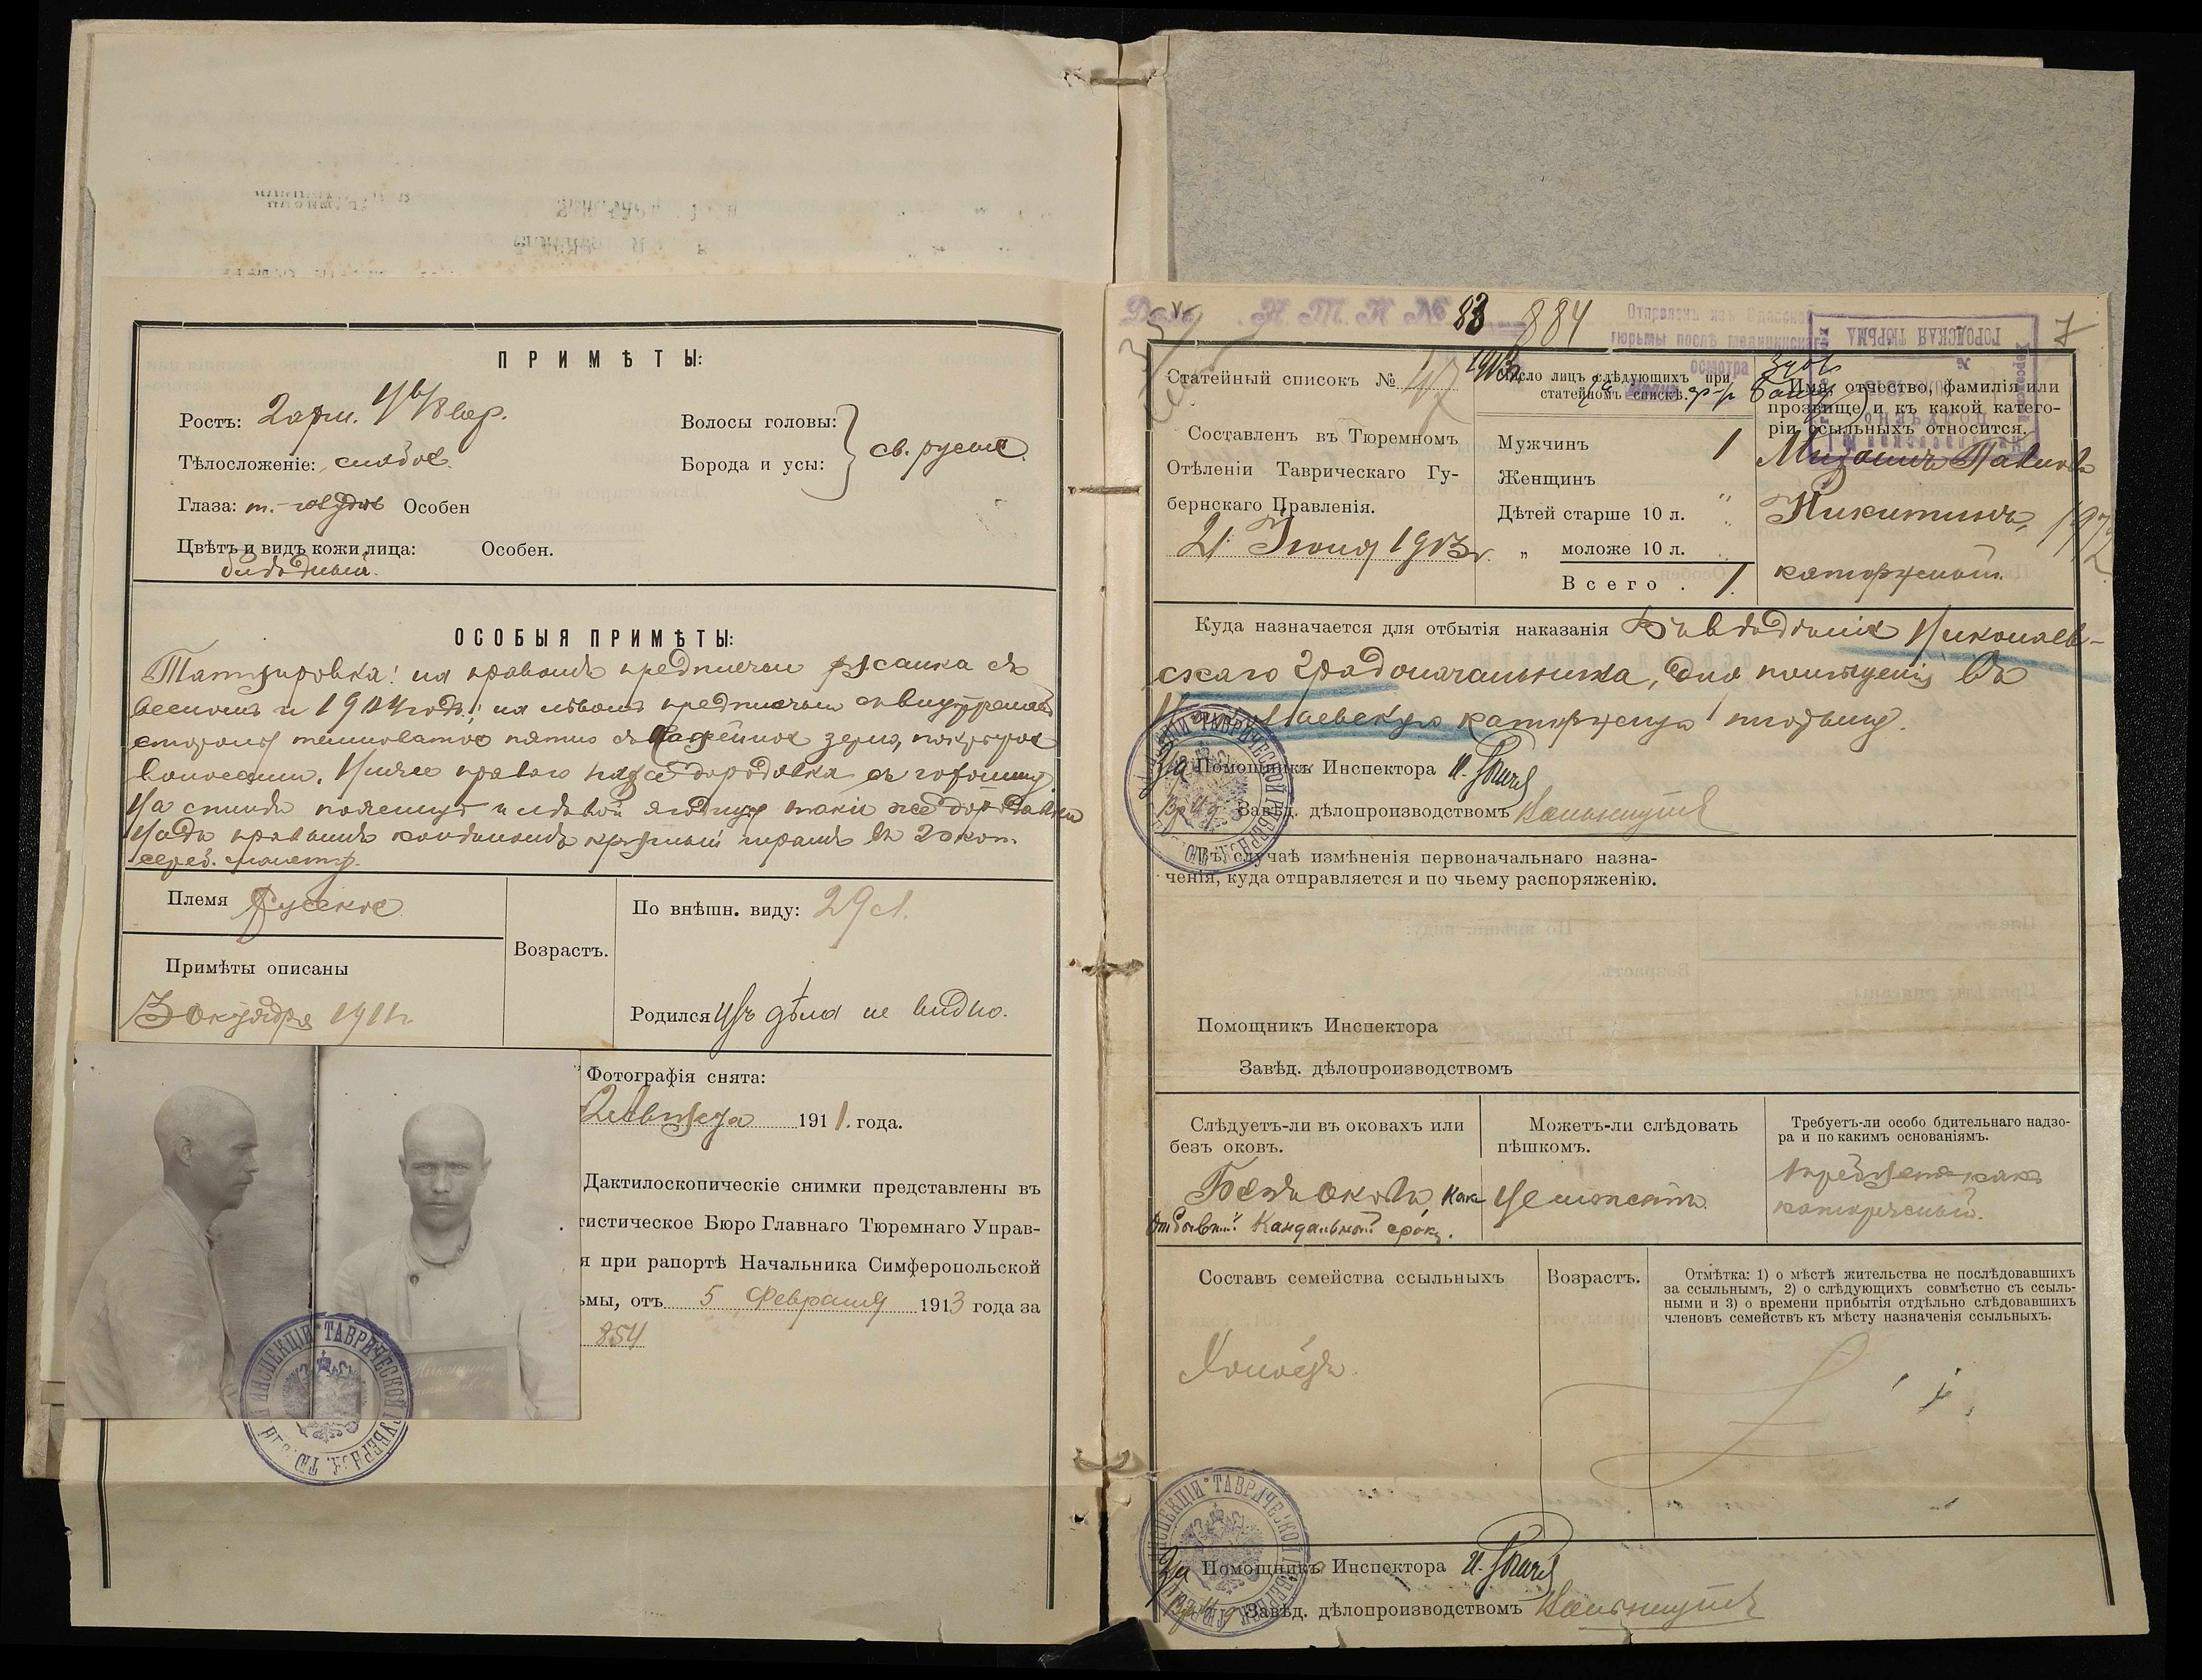 ПРИМѢТЫ:
Ростъ: 2 арш. вер.
Волосы головы:
Борода и усы:
св. русые
Тѣлосложеніе: слабое.
Глаза: т.-голубые Особен
Цвѣтъ и видъ кожи лица: Особен.
блѣдный.
ОСОБЫЯ ПРИМѢТЫ:
Татуировка: на правомъ предплечьи русалка съ
весломъ и 1904 годъ; на лѣвомъ предплечьи съ внутренней
стороны темноватое пятно съ кофейное зерно, покрытое
волосами. Ниже праваго бородавка съ горошину
На спинѣ и лѣвой ягодицѣ такія же бородавки
Надъ правымъ колѣномъ круглый шрамъ въ 20 коп.
сереб. монету.
Племя Русское
Возрастъ.
По внѣшн. виду: 29 л.
Примѣты описаны
3 Октября 1911 г.
Родился Изъ дѣла не видно.
Фотографія снята:
1911. года.
Дактилоскопическіе снимки представлены въ
тистическое Бюро Главнаго Тюремнаго Управ-
я при рапортѣ Начальника Симферопольской
ьмы, отъ 5 Февраля 1913 года за
854
Н. Т. К № 83 884
Отправленъ изъ Одесской
тюрьмы послѣ медицинскаго
осмотра
ГОРОДСКАЯ ТЮРЬМА
№
7
Статейный списокъ № 47 1913
Число лицъ слѣдующихъ при
статейномъ спискѣ.
Имя, отчество, фамилія или
прозвище и къ какой катего-
ріи ссыльныхъ относится.
Составленъ въ Тюремномъ
Отдѣленіи Таврическаго Гу-
бернскаго Правленія.
21 Іюня 1913 г.
Мужчинъ 1
Женщинъ "
Дѣтей старше 10 л. "
" моложе 10 л. "
Всего . 1.
Павловъ
Никитинъ,
каторжный.
Куда назначается для отбытія наказанія Въ вѣдѣніе Николаев-
скаго Градоначальника, для помѣщенія въ
Николаевскую каторжную тюрьму.
За Помощникъ Инспектора
Завѣд. дѣлопроизводствомъ
ИНСПЕКЦІИ ТАВРИЧЕСКОЙ ГУБЕРНІИ
Въ случаѣ измѣненія первоначальнаго назна-
ченія, куда отправляется и по чьему распоряженію.
Помощникъ Инспектора
Завѣд. дѣлопроизводствомъ
Слѣдуетъ-ли въ оковахъ или
безъ оковъ.
Безъ оковъ, какъ
отбывшій Кандальный срокъ.
Можетъ-ли слѣдовать
пѣшкомъ.
Не можетъ.
Требуетъ-ли особо бдительнаго надзо-
ра и по какимъ основаніямъ.
Требуетъ какъ
каторжный.
Составъ семейства ссыльныхъ
Холостъ.
Возрастъ.
Отмѣтка: 1) о мѣстѣ жительства не послѣдовавшихъ
за ссыльнымъ, 2) о слѣдующихъ совмѣстно съ ссыль-
ными и 3) о времени прибытія отдѣльно слѣдовавшихъ
членовъ семействъ къ мѣсту назначенія ссыльныхъ.
За Помощникъ Инспектора
Завѣд. дѣлопроизводствомъ